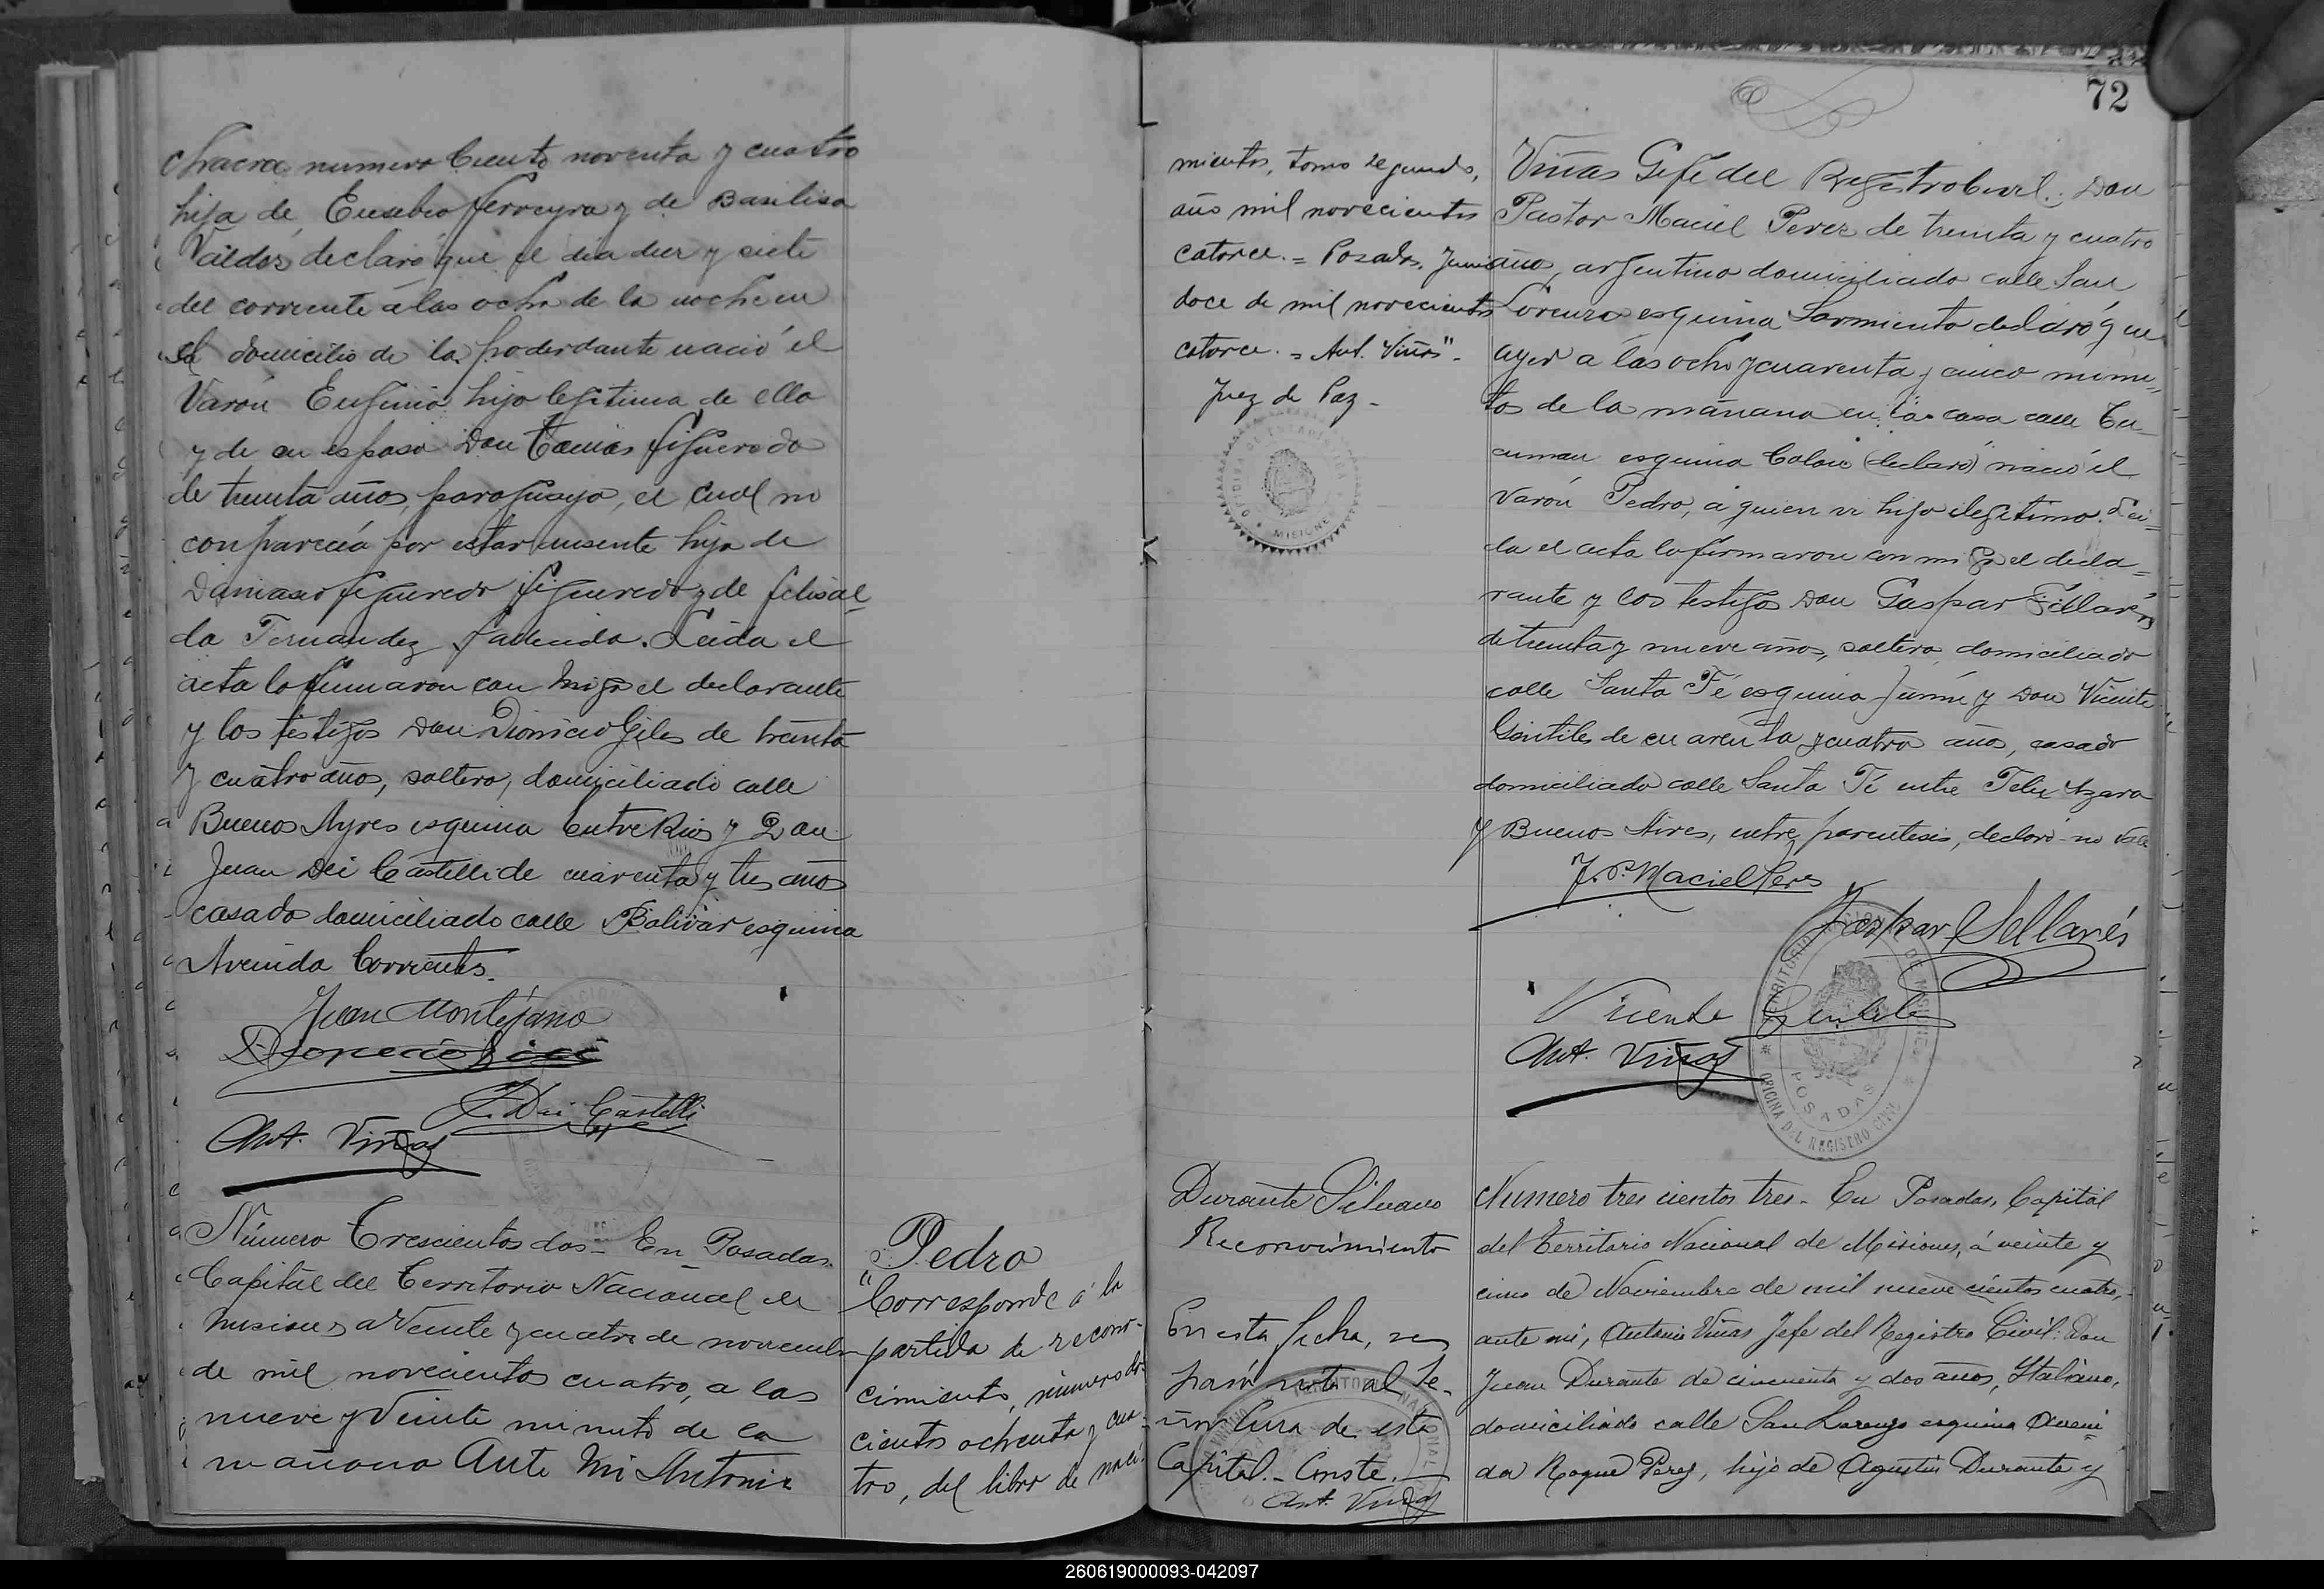 chacra numero Ciento noventa y cuatro
hija de Eusebio Ferreyra y de Basilisa
Valdés, declaró que el dia diez y siete
del corriente á las ocho de la noche en
el domicilio de la poderdante nació el
Varón Eugenio hijo legitimo de ella
y de su esposo Don Tomás figueredo
de treinta años, paraguayo, el cual no
comparecía por estar ausente hijo de
Damaso figueredo figueredo y de
da Fernandez fallecida. Leida el
acta la firmaron con migo el declarante
y los testigos Don Dionicio Giles de treinta
y cuatro años, soltero, domiciliado calle
Buenos Ayres esquina Entre Rios y Don
Juan Dei Castelli de cuarenta y tres años
casado domiciliado calle Bolivar esquina
Avenida Corrientes.
Juan Montéjano
J. Dei Castelli
Ant. Viñas
Número Trescientos dos - En Posadas.
Capital del Territorio Nacional de
Misiones a Veinte y cuatro de noviembre
de mil novecientos cuatro, a las
nueve y Veinte minuto de la
mañana Ante Mi Antonio
Pedro
"Corresponde á la
partida de recono-
cimiento, número dos-
cientos ochenta y cua-
tro, del libro de naci-
72
mientos, tomo segundo,
año mil novecientos
catorce. = Posadas, Junio
doce de mil novecientos
catorce. = Ant. Viñas".
Juez de Paz -
MISIONES
Viñas Gefe del Registro Civil: Don
Pastor Maciel Perez de treinta y cuatro
años, argentino domiciliado calle San
Lorenzo esquina Sarmiento declaró que
ayer a las ocho y cuarenta y cinco minu-
tos de la mañana en la casa calle Tu-
cuman esquina Colon (declaró) nació el
Varón Pedro, a quien hijo ilegitimo. Lei-
da el acta la firmaron con migo el decla-
rante y los testigos Don Gaspar Sellarés
de treinta y nueve años, soltero domiciliado
calle Santa Fé esquina Junin y Don Vicente
Gentile de cuarenta y cuatro años, casado
domiciliado calle Santa Fé entre Felix Azara
y Buenos Aires, entre parentesis, declaró - no vale
J. P. Maciel Perez
Gaspar Sellarés
Vicente Gentile
Ant. Viñas
POSADAS
OFICINA DEL REGISTRO CIVIL
Durante Silvano
Reconocimiento
En esta fecha, se
pasó nota al Se-
ñor Cura de esta
Capital. - Conste. -
Ant. Viñas
Numero tres cientos tres - En Posadas, Capital
del Territorio Nacional de Misiones, á veinte y
cinco de Noviembre de mil nueve cientos cuatro,
ante mi, Antonio Viñas Jefe del Registro Civil: Don
Juan Durante de cincuenta y dos años, Italiano,
domiciliado calle San Lorenzo esquina Aveni-
da Roque Perez, hijo de Agustin Durante y
260619000093-042097